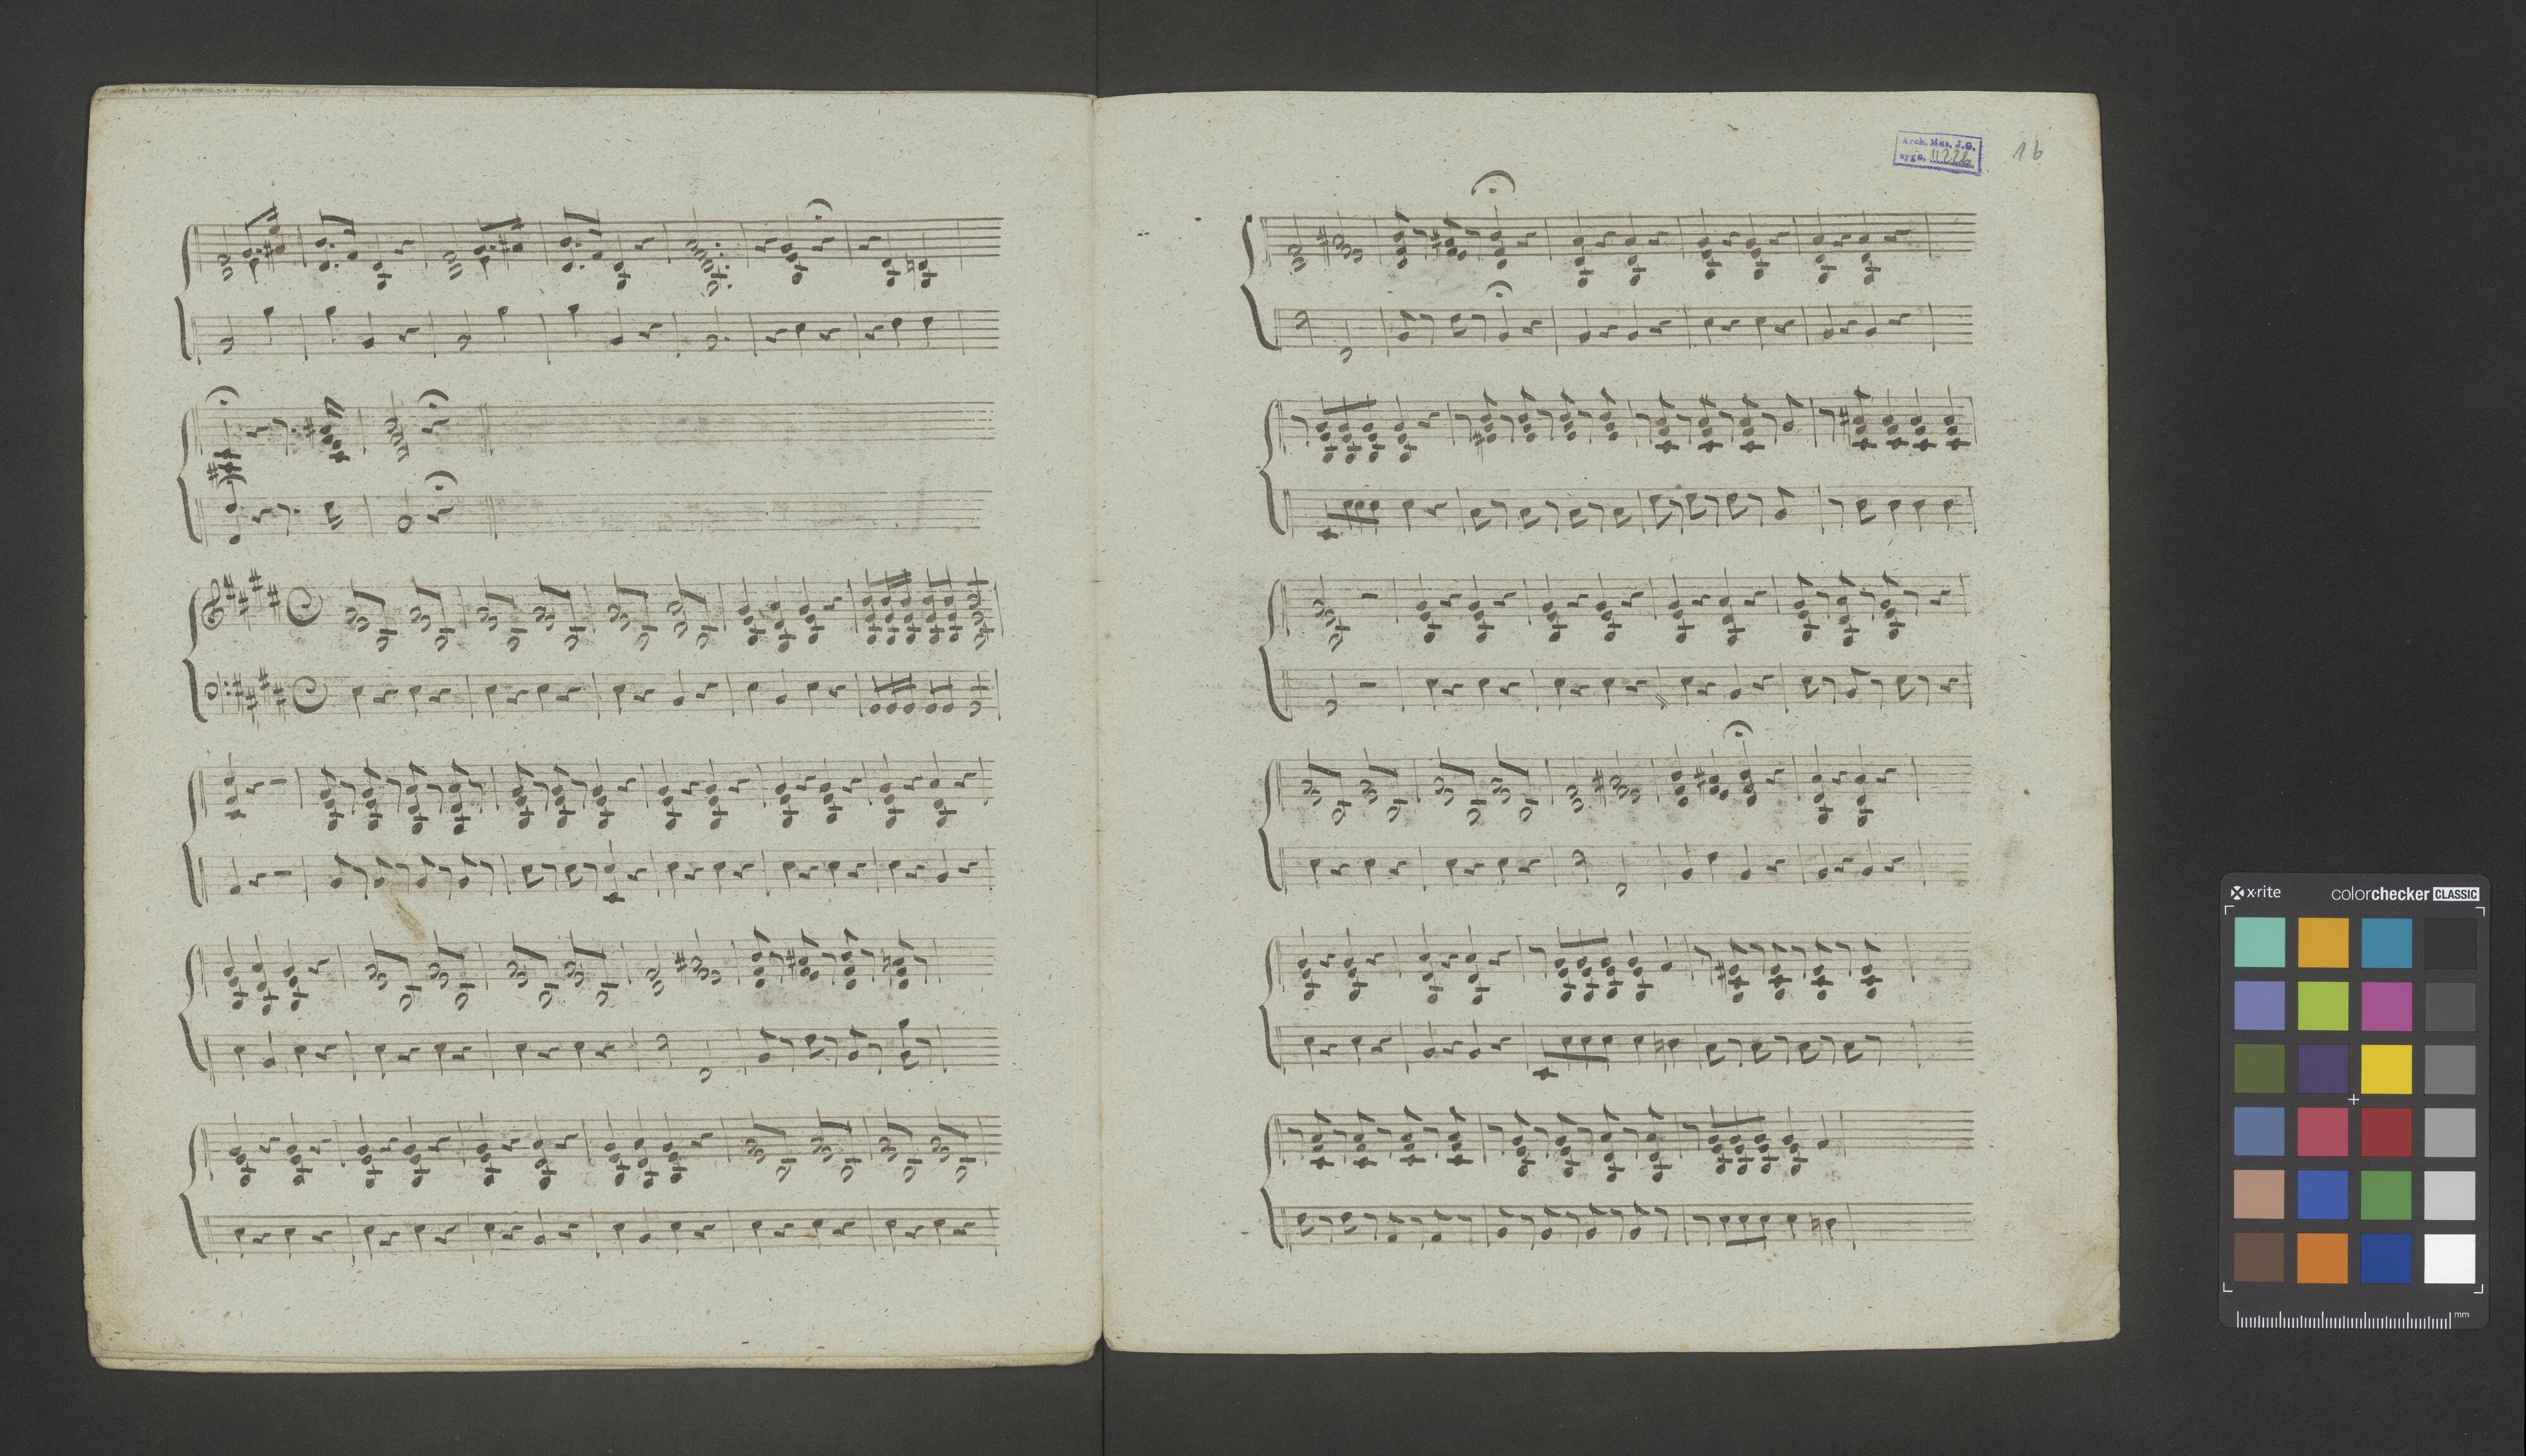 Arch. Mus. J.G.
sygn. 16
x·rite colorchecker CLASSIC
mm